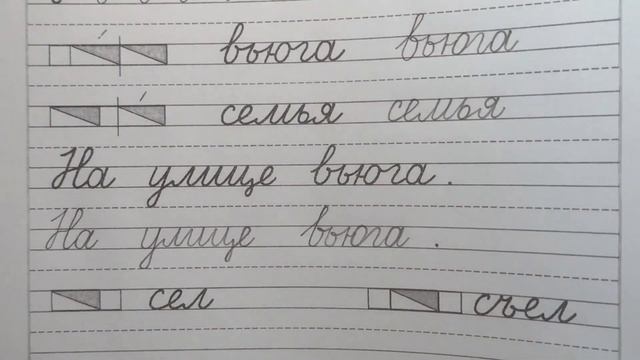 вьюга вьюга
семья семья
На улице вьюга.
На улице вьюга.
сел съел